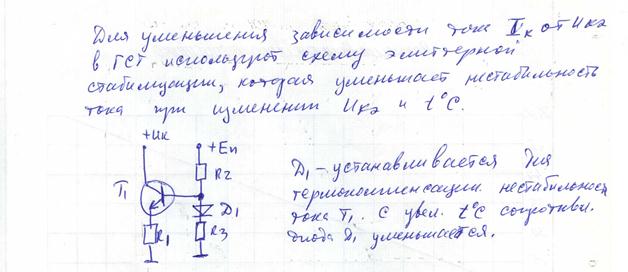 Для уменьшения зависимости тока Iк от Uкэ
в ГСТ используют схему эмиттерной
стабилизации, которая уменьшает нестабильность
тока при изменении Uкэ и t°C.
+Uк
+Eп
R2
T1
D1
R1
R3
D1 – устанавливается для
термокомпенсации нестабильности
тока T1. С увел. t°C сопротивл.
диода D1 уменьшается.